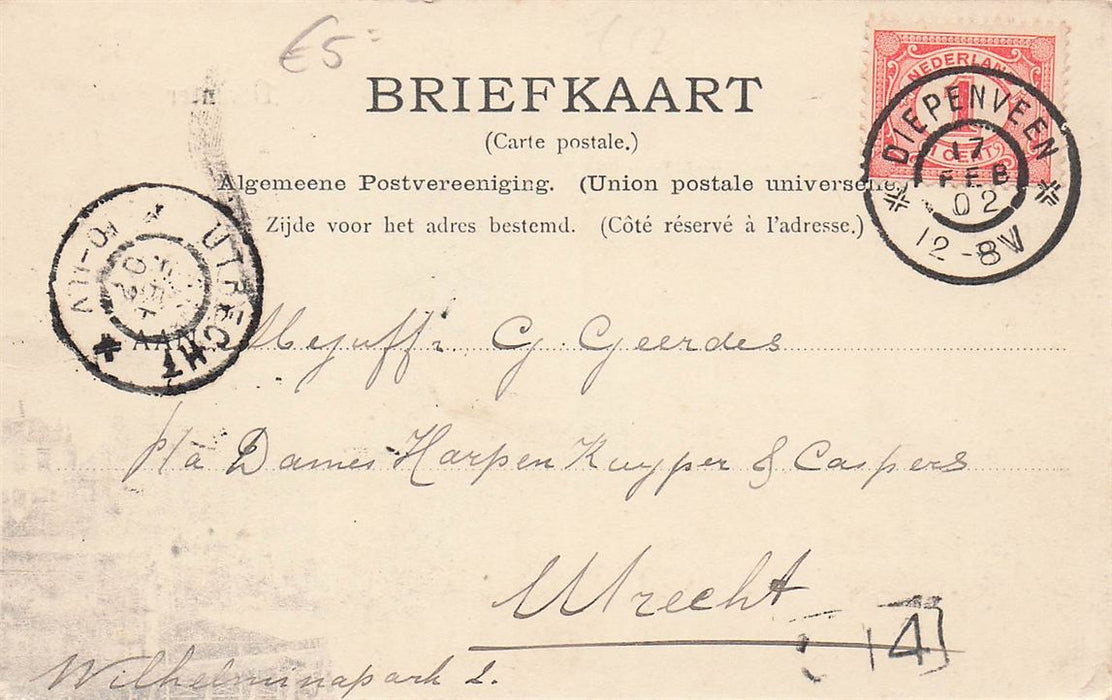 €5=
BRIEFKAART
(Carte postale.)
Algemeene Postvereeniging. (Union postale universelle.)
Zijde voor het adres bestemd. (Côté réservé à l'adresse.)
NEDERLAND
1
CENT
DIEPENVEEN
17
FEB
02
12-8V
UTRECHT
10-11V
AAN
Mejuffr. G. Geerdes
p/a Dames Harpen Kuyper & Caspers
Utrecht
14
Wilhelminapark 2.